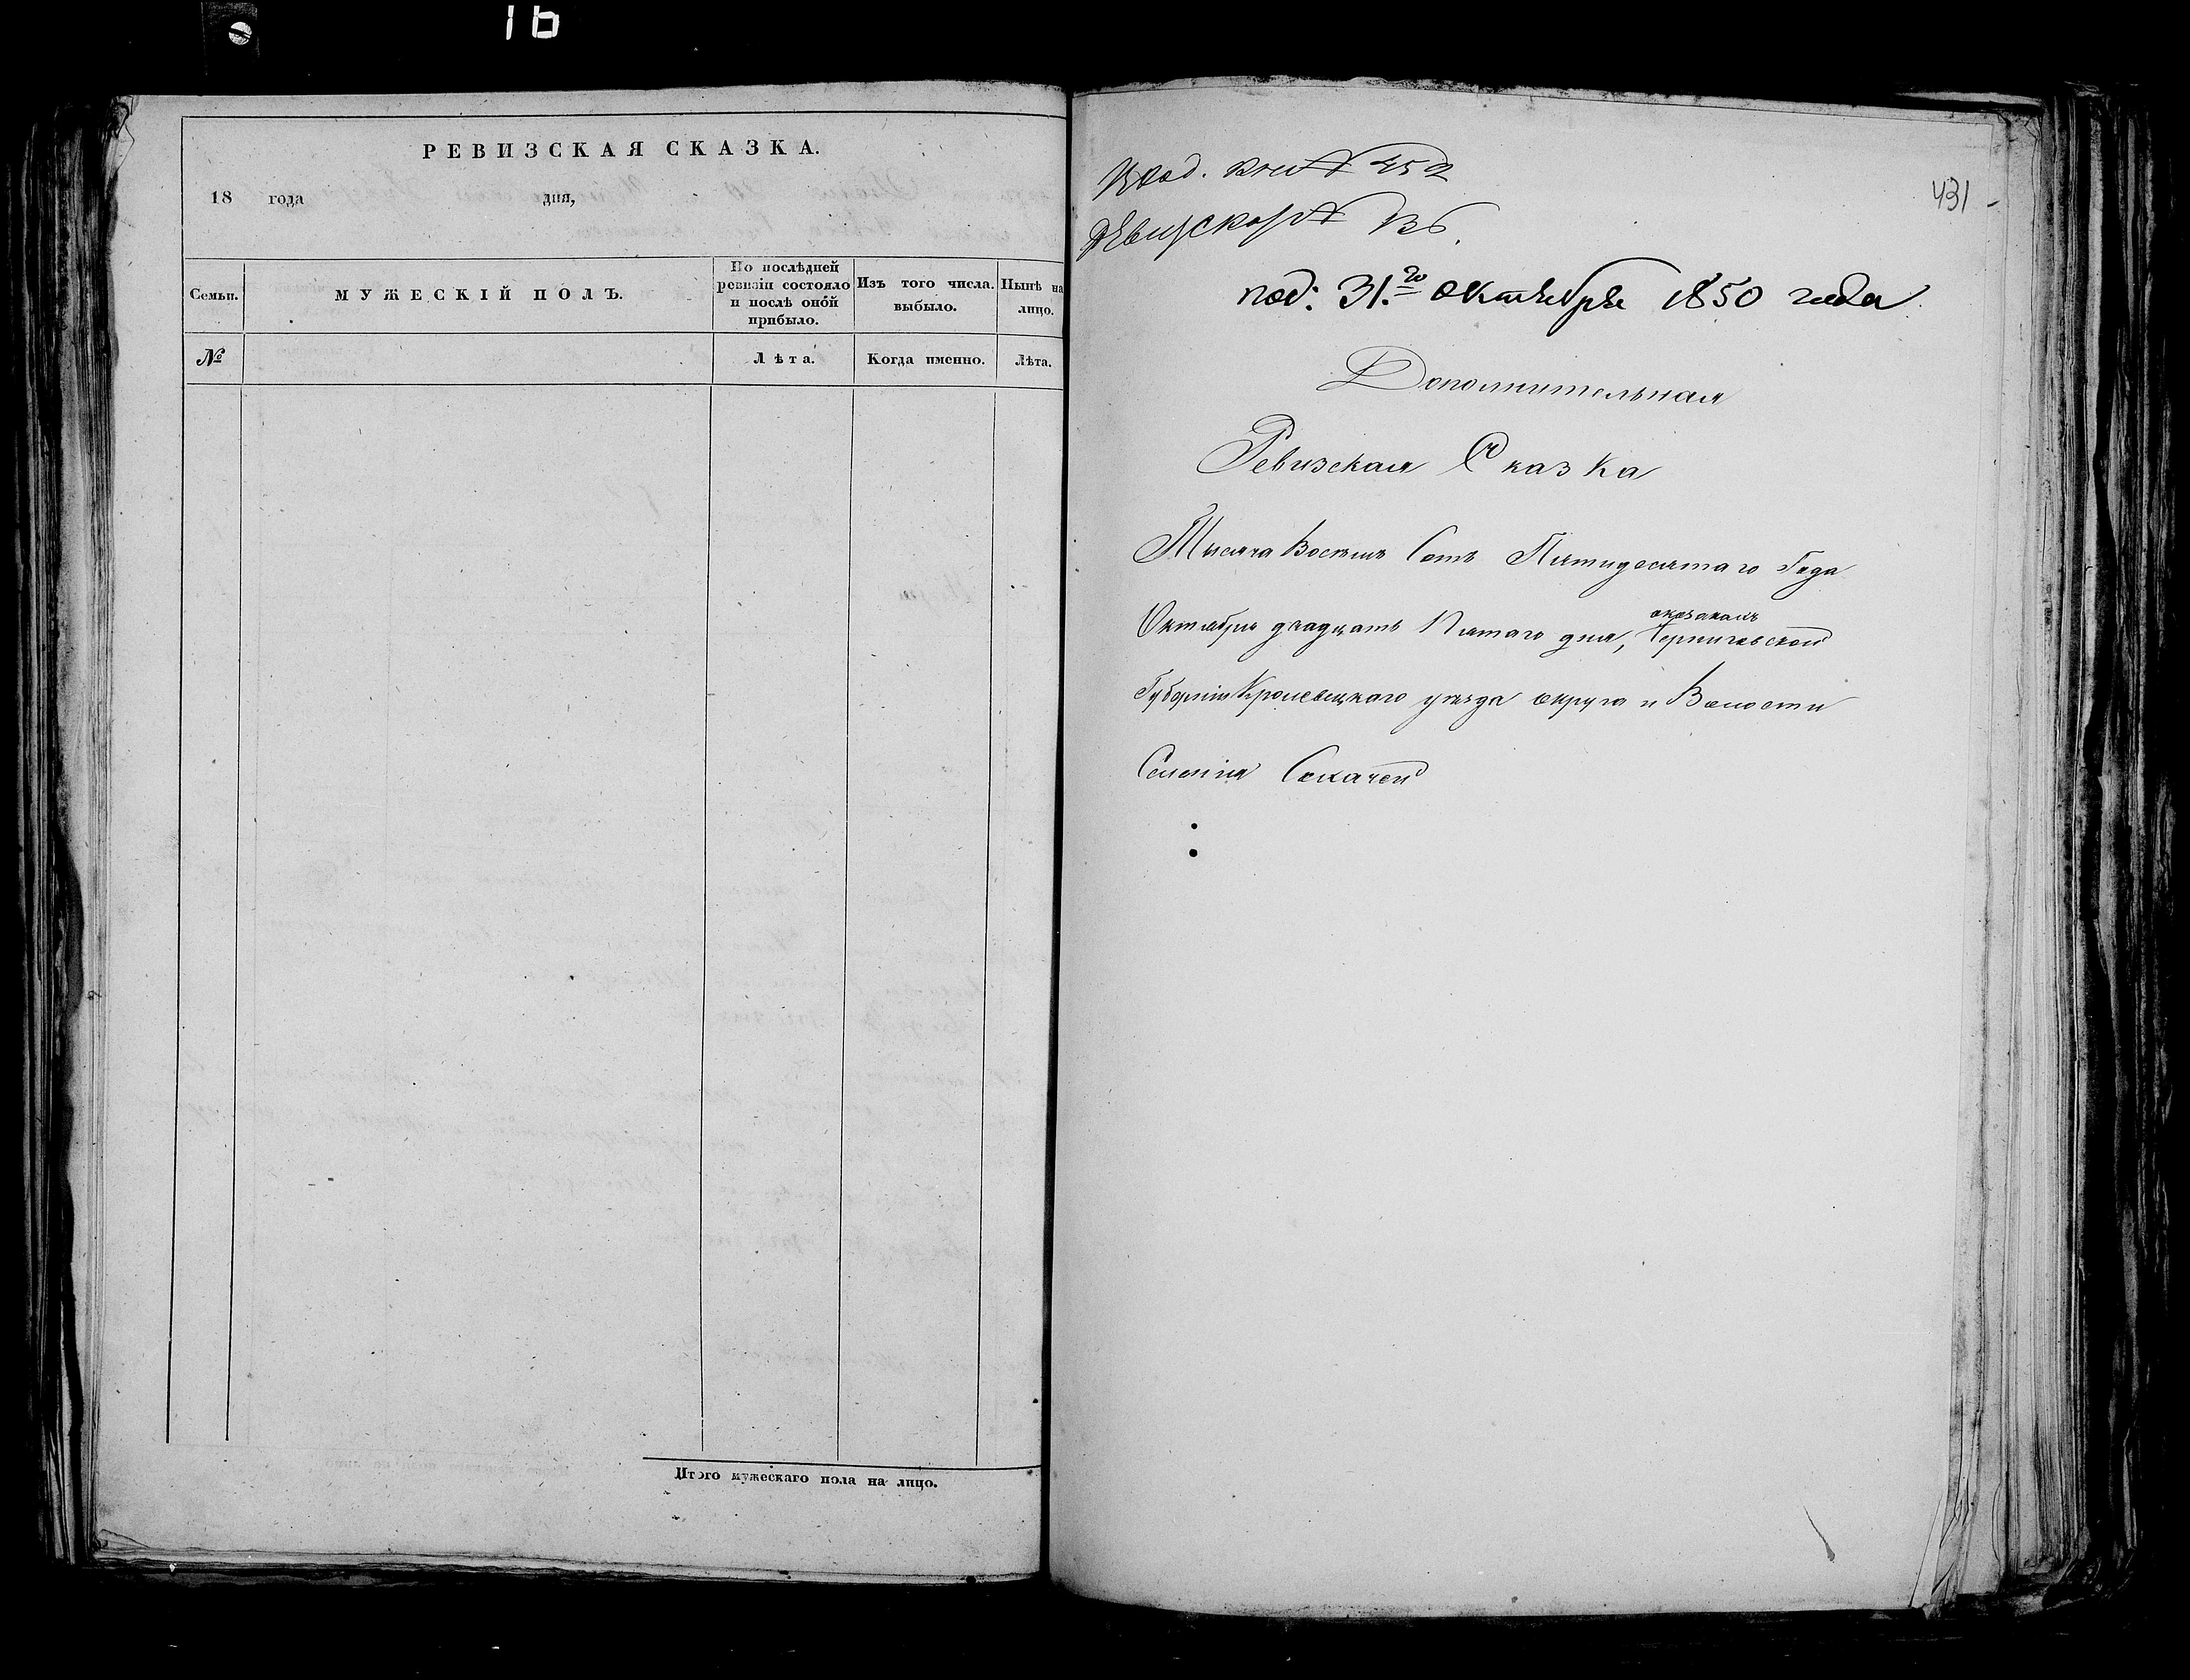 16
РЕВИЗСКАЯ СКАЗКА.
18 года дня,
Семьи.
МУЖЕСКІЙ ПОЛЪ.
По послѣдней
ревизіи состояло
и послѣ оной
прибыло.
Изъ того числа.
выбыло.
Нынѣ на
лицо.
№
Лѣта.
Когда именно.
Лѣта.
Итого мужескаго пола на лицо.
431
Вход. №
Ревизской №
под: 31.го октября 1850 года
Дополнительная
Ревизская Сказка
Тысяча Восемь Сотъ Пятидесятаго Года
Октября двадцать Пятаго дня, о козакахъ Черниговской
Губерніи Кролевецкаго уѣзда округа и Волости
Селенія